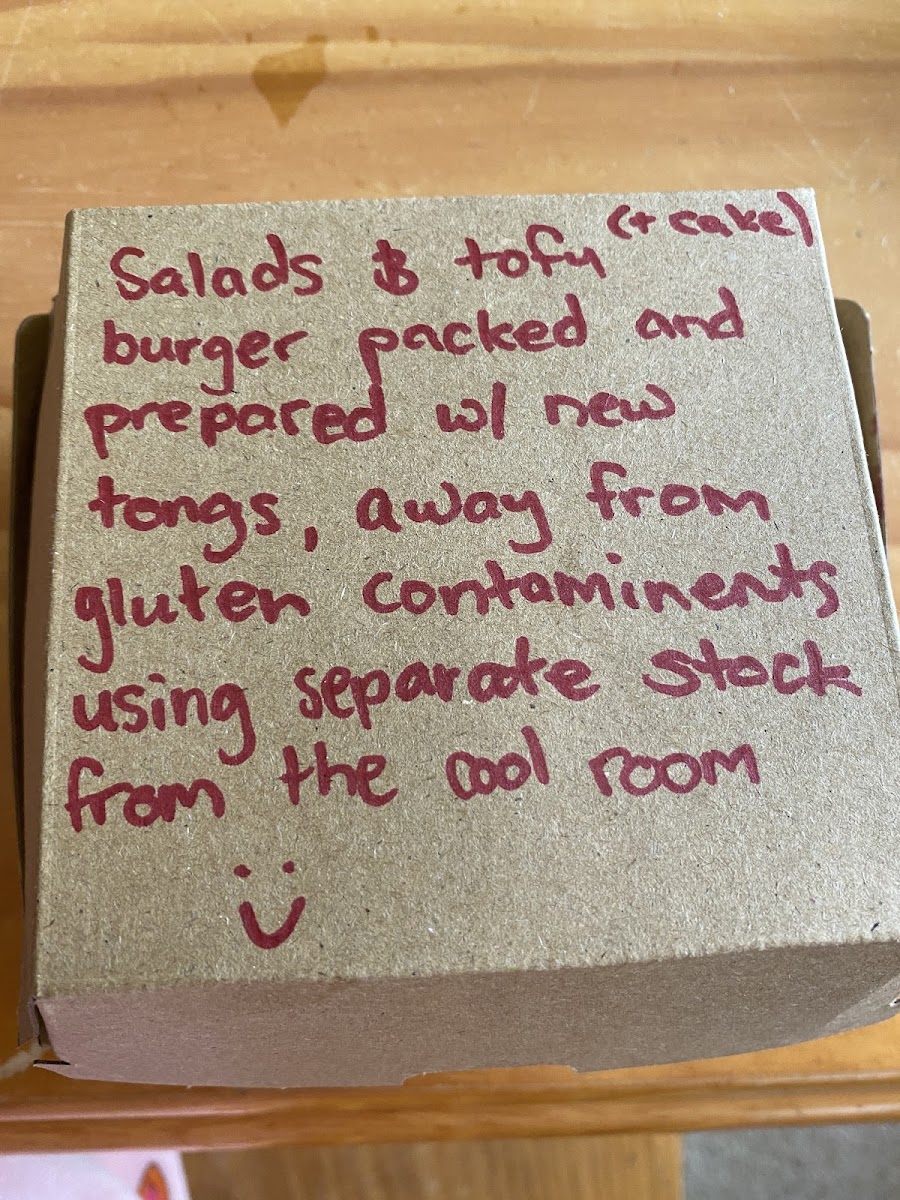 Salads & tofu (+ cake)
burger packed and
prepared w/ new
tongs, away from
gluten contaminents
using separate stock
from the cool room